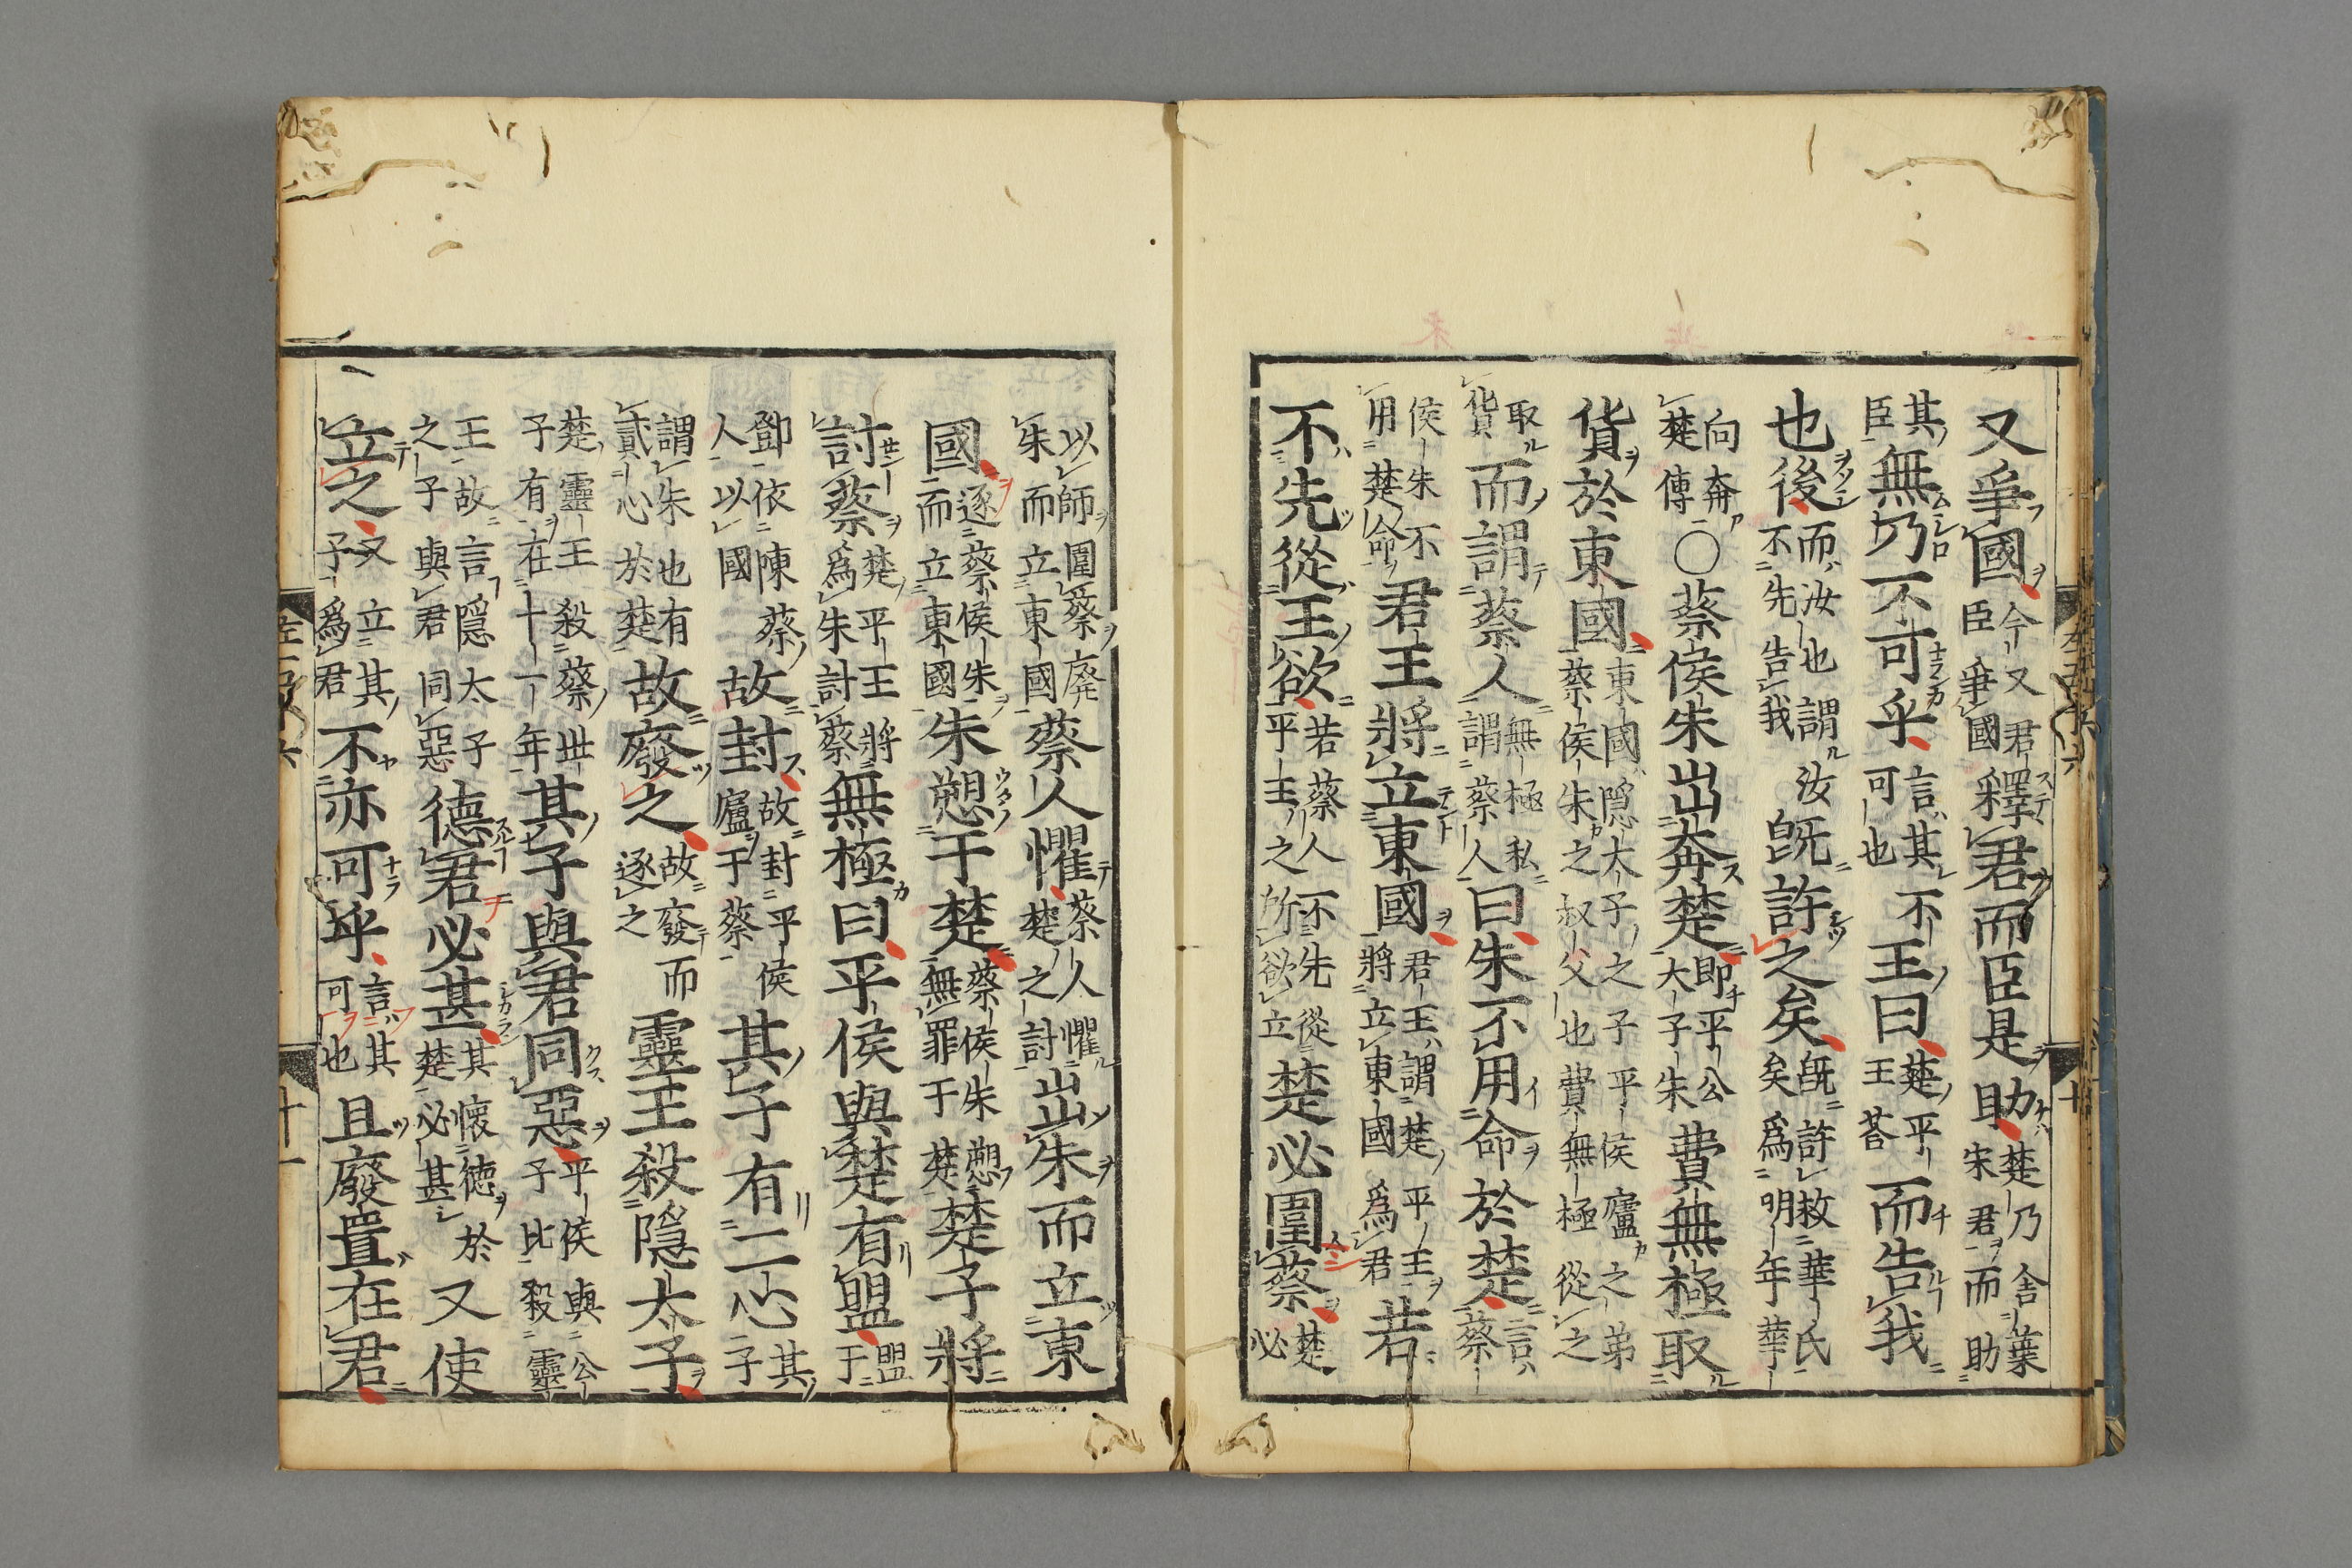 又爭國今又君臣爭國釋君而臣是助楚乃舍葉宋君而助
其臣無乃不可乎言其不可也王曰楚平王荅而告我
也後而汝也謂汝不先告我既許之矣既許救華氏矣爲明年華
向奔楚傳〇蔡侯朱出奔楚即平公大子朱費無極取
貨於東國東國隱太子之子平侯廬之弟蔡侯朱之叔父也費無極從之
取貨而謂蔡人無極私謂蔡人曰朱不用命於楚言蔡
侯朱不用楚命君王將立東國君王謂楚平王將立東國爲君若
不先從王欲若蔡人不先從平王之所欲立楚必圍蔡楚必
以師圍蔡廢朱而立東國蔡人懼蔡人懼楚之討出朱而立東
國逐蔡侯朱而立東國朱愬于楚蔡侯朱愬無罪于楚楚子將
討蔡楚平王將爲朱討蔡無極曰平侯與楚有盟盟于
鄧依陳蔡人以國故封故封平侯廬于蔡其子有二心其子
謂朱也有貳心於楚故廢之故廢而逐之靈王殺隱太子
楚靈王殺蔡世子有在十一年其子與君同惡平侯與公子比殺靈
王故言隱太子之子與君同惡德君必甚其懷德於楚必甚又使
立之又立其子爲君不亦可乎言其可也且廢置在君